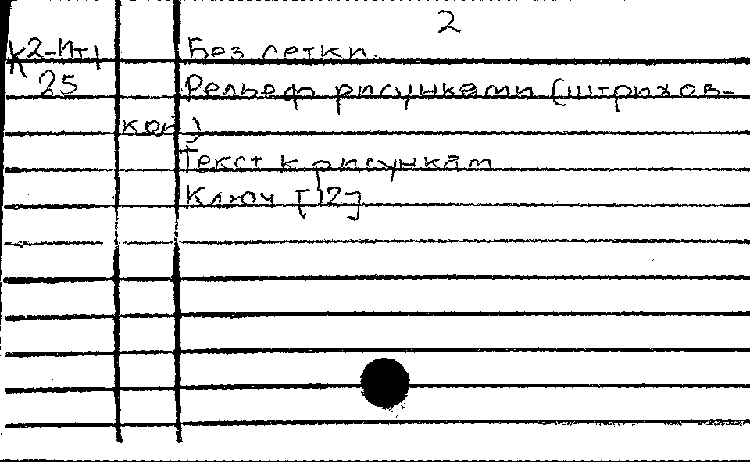 2
К2-Ит1 Без сетки.
25 Рельеф рисунками (штрихов-
кой)
Текст к рисункам
Ключ [12]